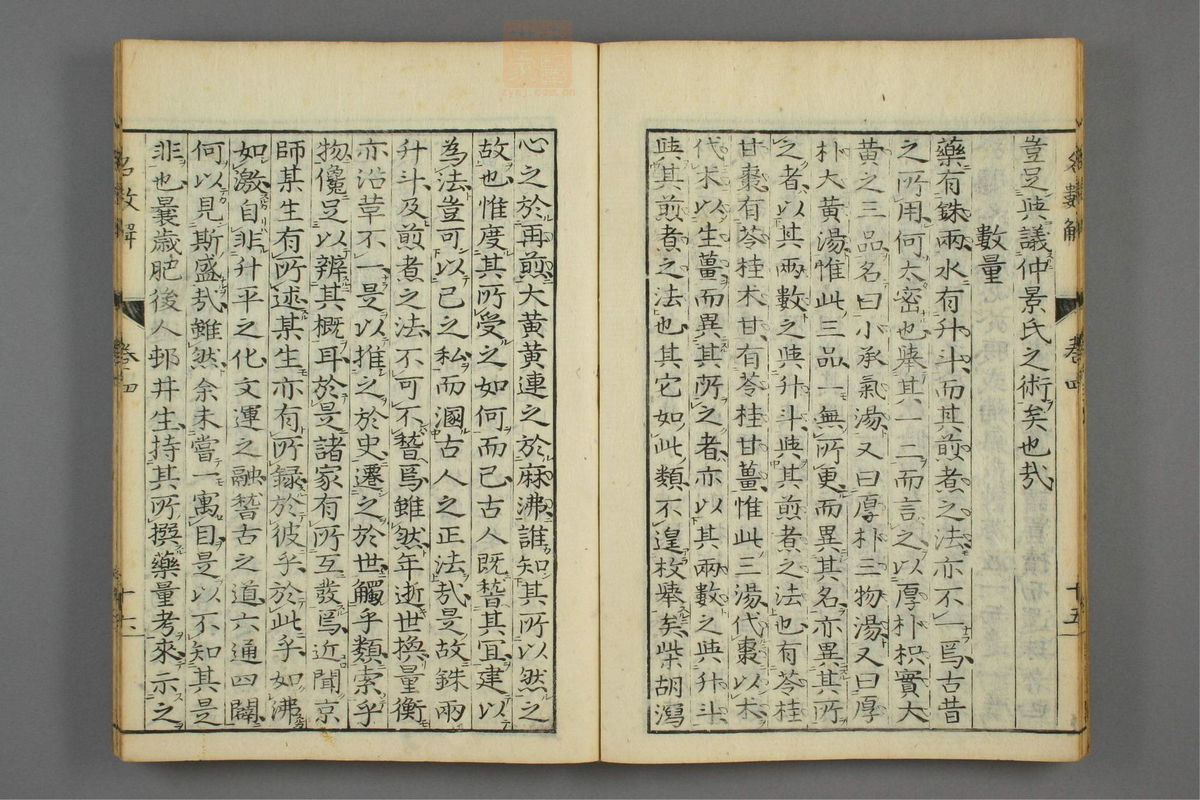 豈足與議仲景氏之術矣也哉
數量
藥有銖兩水有升斗而其煎煮之法亦不一焉古昔
之所用何太密也擧其一二而言之以厚朴枳實大
黃之三品名曰小承氣湯又曰厚朴三物湯又曰厚
朴大黃湯惟此三品一無所更而異其名亦異其所
之者以其兩數之與升斗與其煎煮之法也有苓桂
甘棗有苓桂朮甘有苓桂甘薑惟此三湯代棗以朮
代朮以生薑而異其所之者亦以其兩數之與升斗
與其煎煮之法也其它如此類不遑枚擧矣柴胡瀉
數解
卷四
十五
心之於再煎大黃黃連之於麻沸誰知其所以然之
故也惟度其所受之如何而已古人既稽其宜建以
為法豈可以己之私而溷古人之正法哉是故銖兩
升斗及煎煮之法不可不稽焉雖然年逝世換量衡
亦沿革不一是以推之於史遷之於世觸乎類索乎
物僅足以辨其概耳於是諸家有所互發焉近聞京
師某生有所述某生亦有所録於彼乎於此乎如沸
如激自非升平之化文運之融稽古之道六通四闢
何以見斯盛哉雖然余未嘗一寓目是以不知其是
非也曩歲肥後人邨井生持其所撰藥量考來示之
數解
卷四
十六